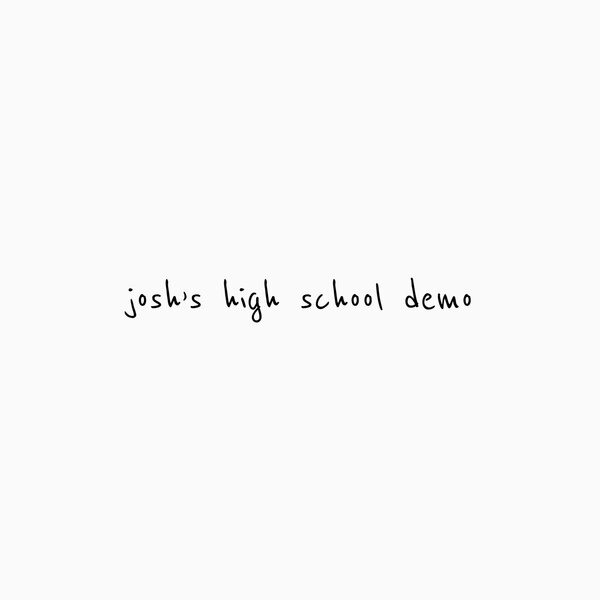 josh's high school demo